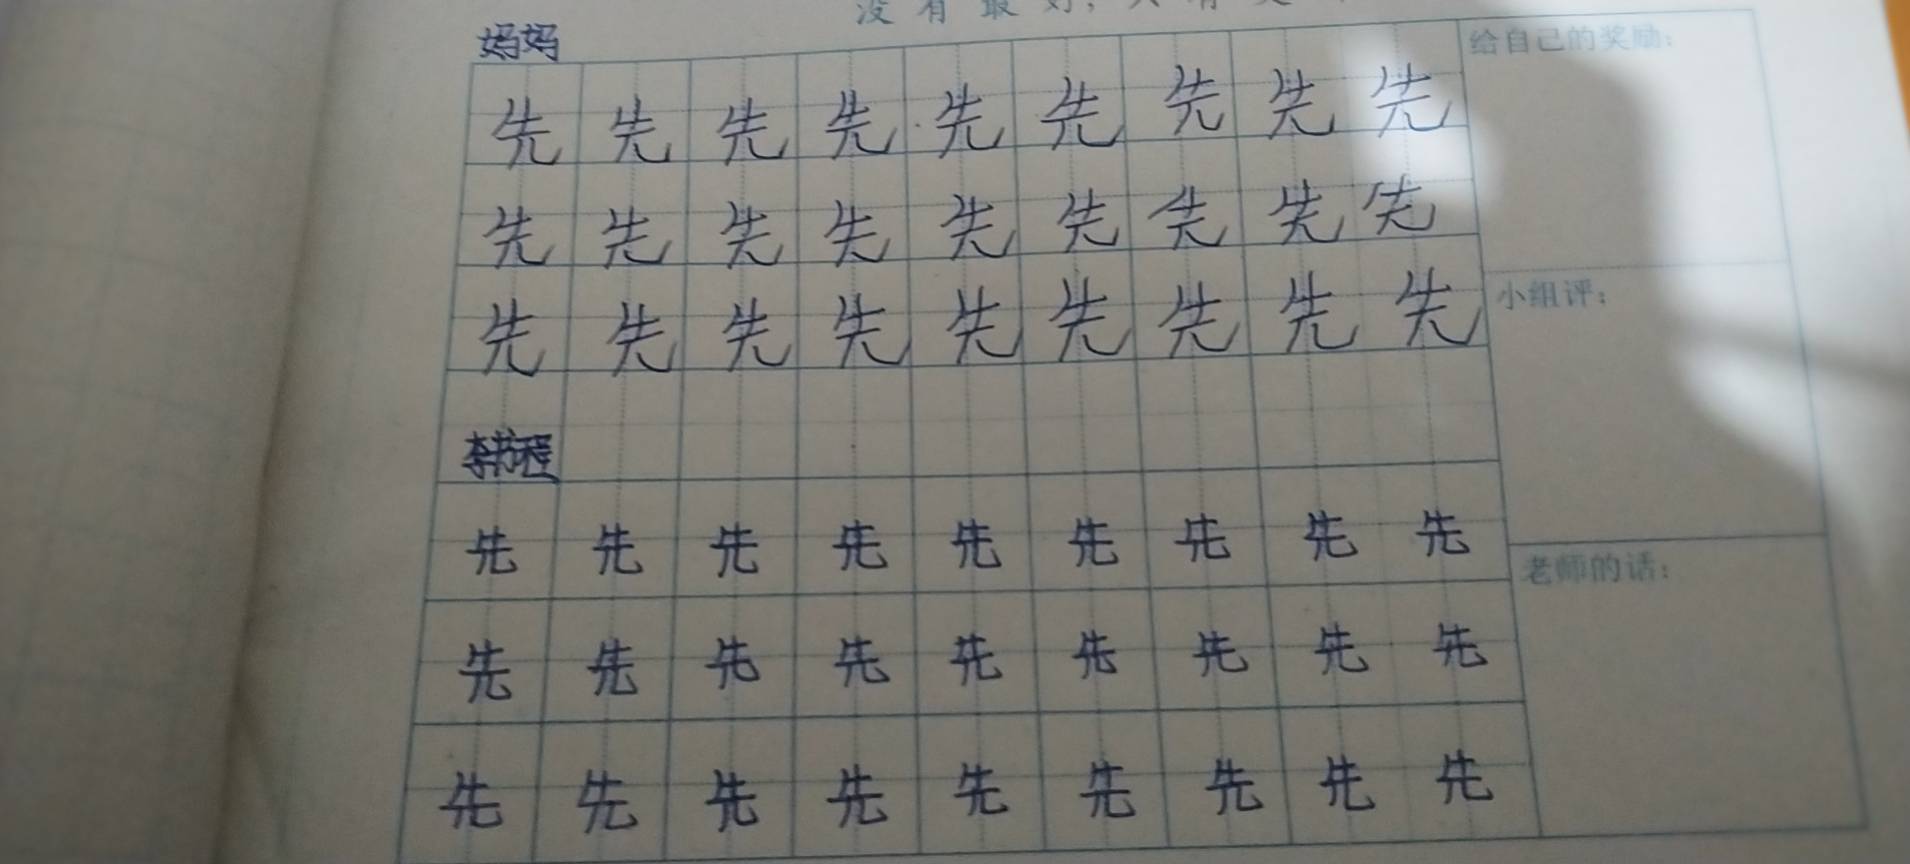 没有最好,只有更
妈妈
给自己的奖励:
先先先先先先先先先
先先先先先先先先先
小组评:
先先先先先先先先先
李书程
先先先先先先先先先
老师的话:
先先先先先先先先先
先先先先先先先先先